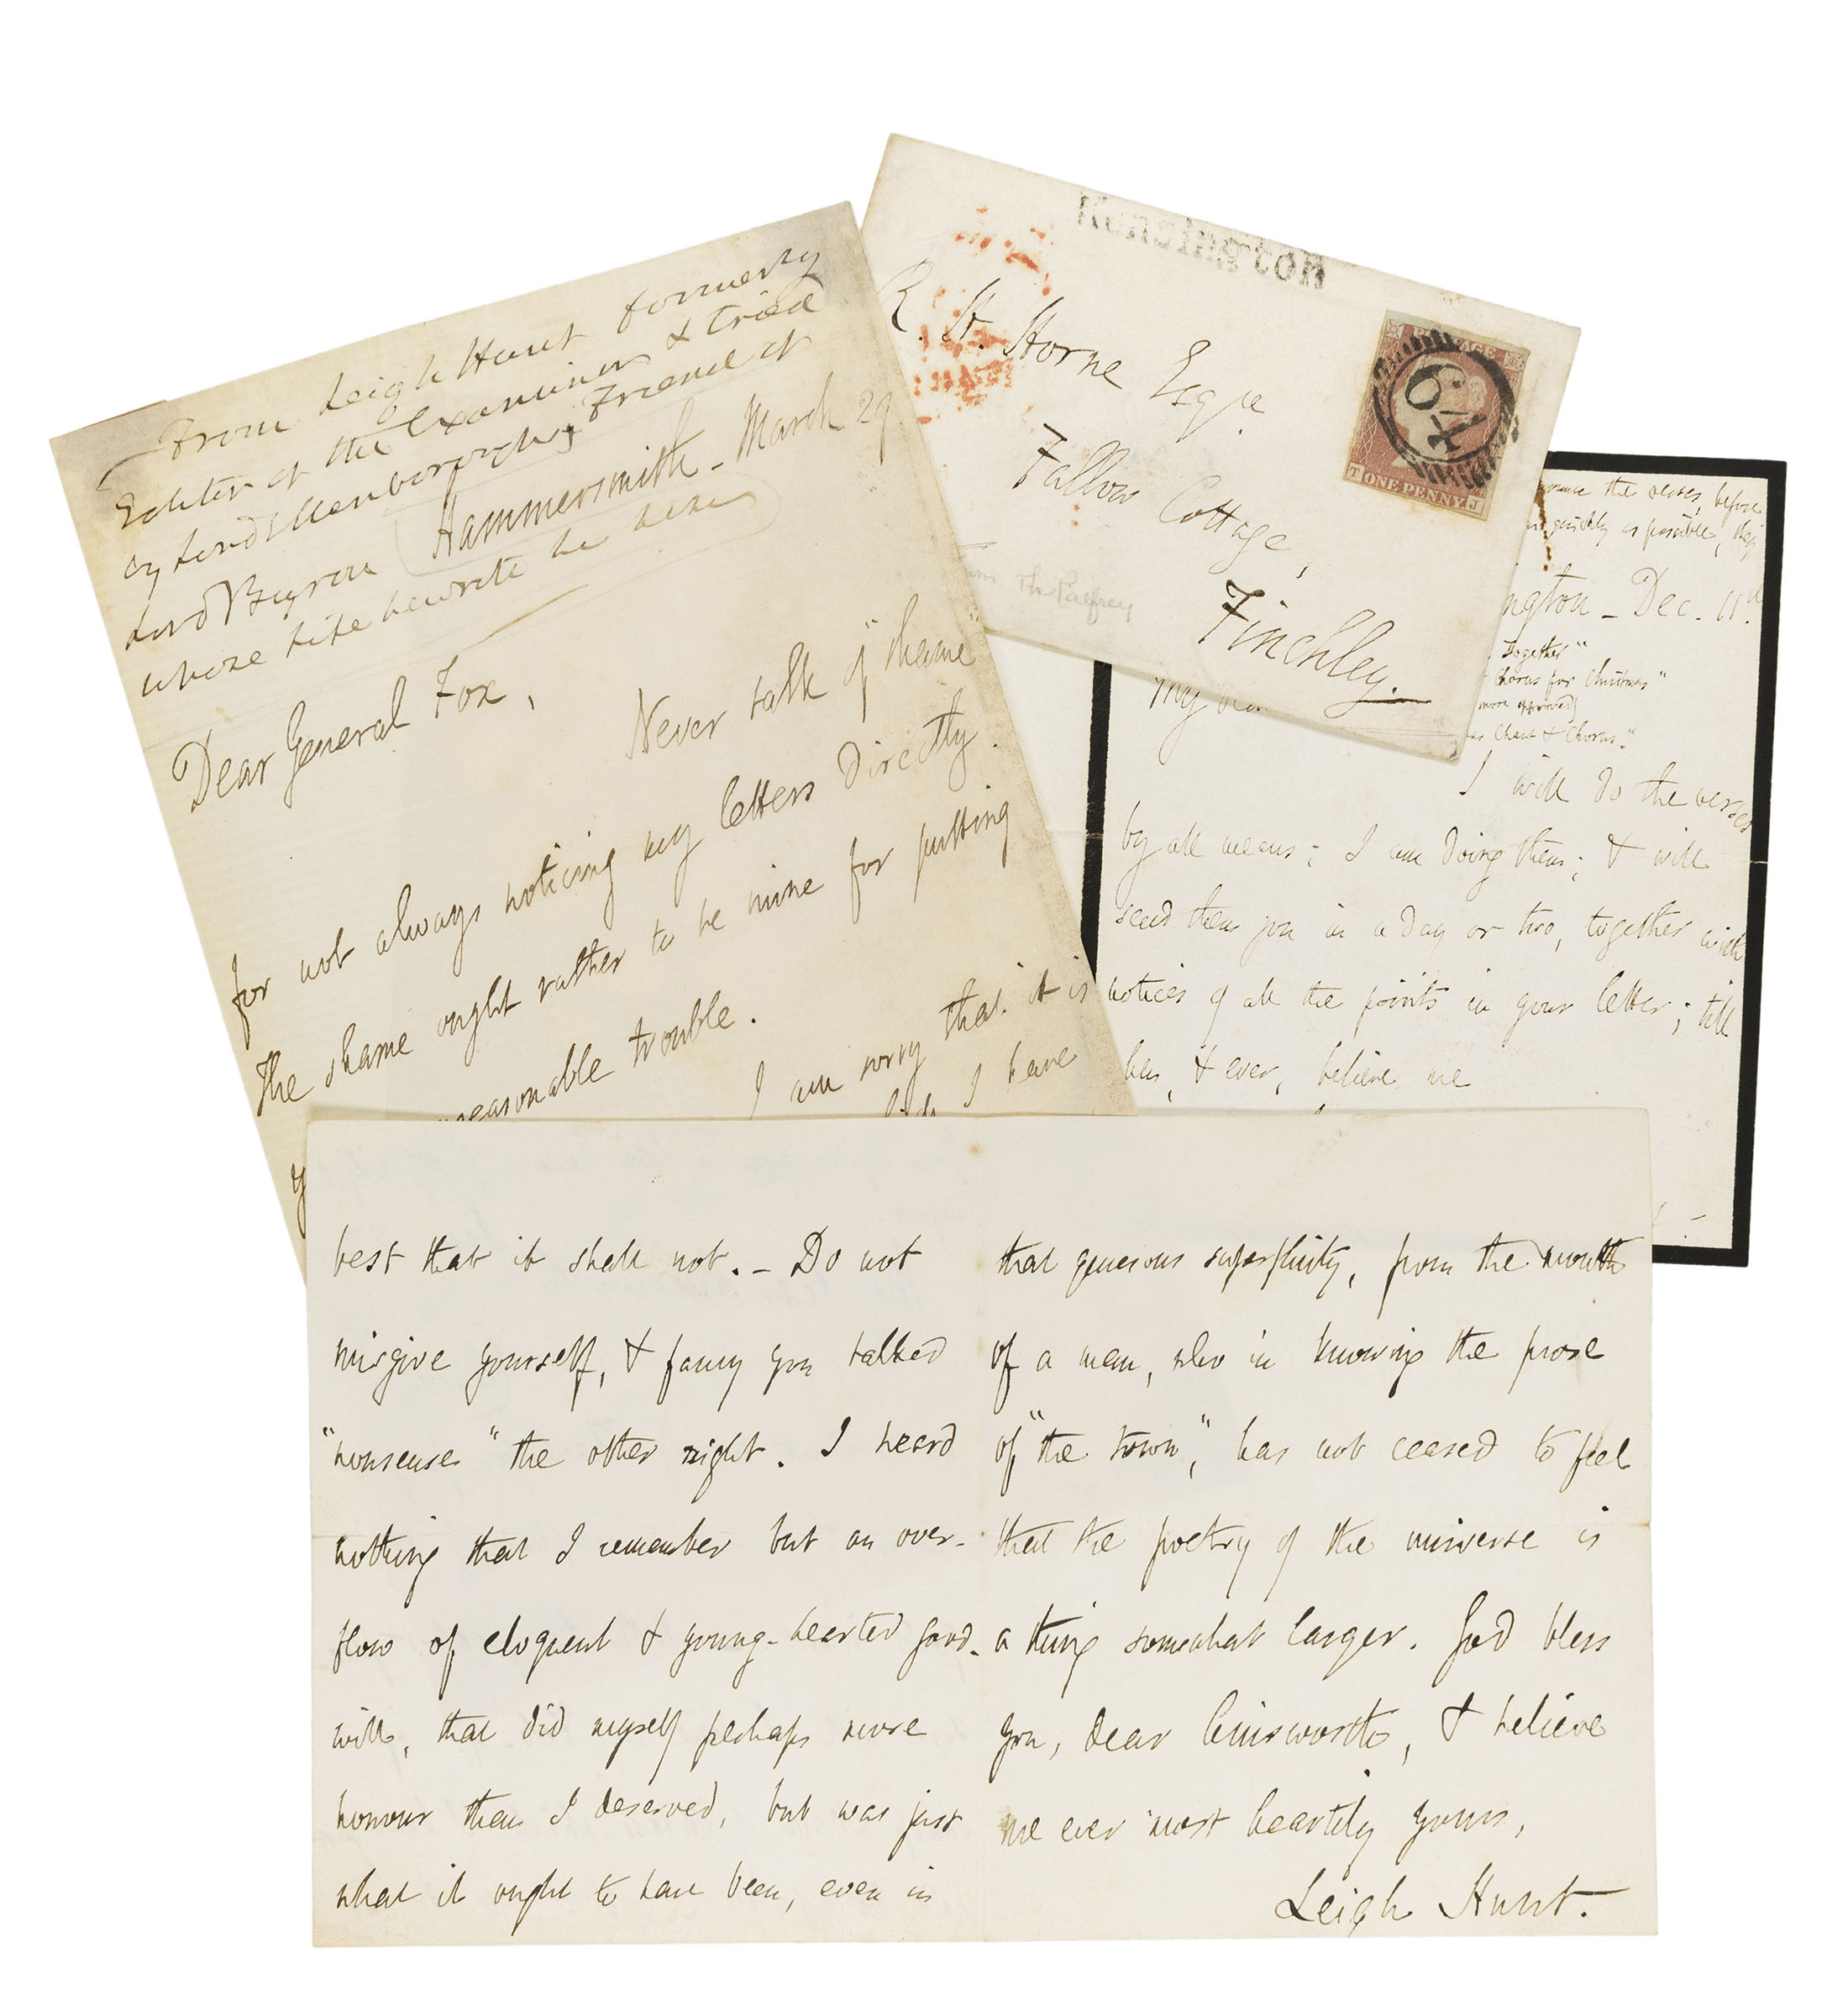 From Leigh Hunt formerly
Editor of the Examiner & tried
by Lord Ellenborough, Friend of
Lord Byron
Hammersmith - March 29.
whose life he wrote
Dear General Fox,
Never talk of "shame"
for not always noticing my letters directly.
The shame ought rather to be mine for putting
trouble.
I am sorry that it is
I have
Kensington
R. H. Horne Esqre.
Fallow Cottage,
Finchley.
POSTAGE
ONE PENNY
T J
the verses, before
quickly as possible, they
ngton - Dec. 11.
Together"
Chorus for Christmas"
Chant & Chorus."
My
I will do the verses
by all means; I am doing them; & will
send them you in a day or two, together with
notices of all the points in your letter; till
then, & ever, believe me
best that it shall not. - Do not
misgive yourself, & fancy you talked
"nonsense" the other night. I heard
nothing that I remember but an over-
flow of eloquent & young-hearted good-
will, that did myself perhaps more
honour than I deserved, but was just
what it ought to have been, even in
that generous superfluity, from the mouth
of a man, who in knowing the prose
of "the town," has not ceased to feel
that the poetry of the universe is
a thing somewhat larger. God bless
you, dear Ainsworth, & believe
me ever most heartily yours,
Leigh Hunt.